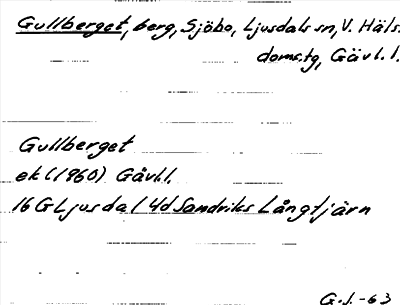 Gullberget, berg, Sjöbo, Ljusdals sn, V. Häls.
doms.tg, Gävl. l.
Gullberget
ek (1960) Gävl.l.
16 G Ljusdal 4d Sandriks Långtjärn
G.J.-63